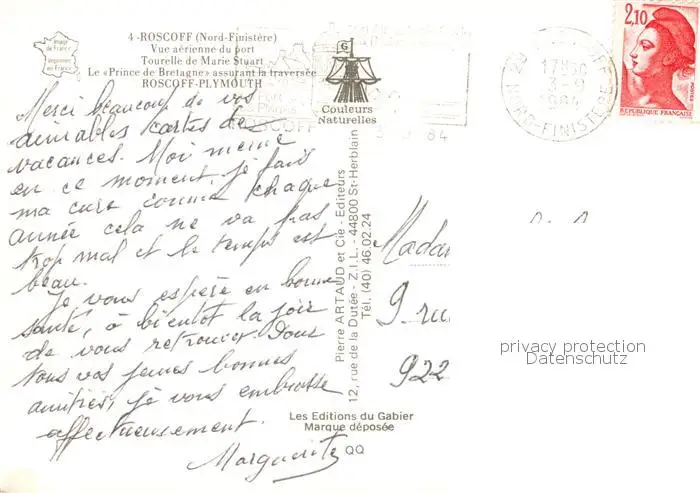 Image
de France
Imprimée
en France
4 - ROSCOFF (Nord-Finistère)
Vue aérienne du port
Tourelle de Marie Stuart
Le «Prince de Bretagne» assurant la traversée
ROSCOFF-PLYMOUTH
G
Couleurs
Naturelles
ROSCOFF
17H30
3-9
1984
NORD-FINISTERE
3 9 84
2,10
REPUBLIQUE FRANÇAISE
POSTES
Merci beaucoup de vos
aimables cartes de
vacances. Moi meme
en ce moment, je fais
ma cure comme chaque
année cela ne va pas
trop mal et le temps est
beau.
Je vous espère en bonne
santé, à bientôt la joie
de vous retrouver. Pour
tous vos jeunes bonnes
amitiés, je vous embrasse
affectueusement.
Marguerite
Pierre ARTAUD et Cie - Editeurs
12, rue de la Dutée - Z.I.L. - 44800 St-Herblain
Tél. (40) 46.02.24
Madam
9 rue
922
privacy protection
Datenschutz
Les Editions du Gabier
Marque déposée
QQ